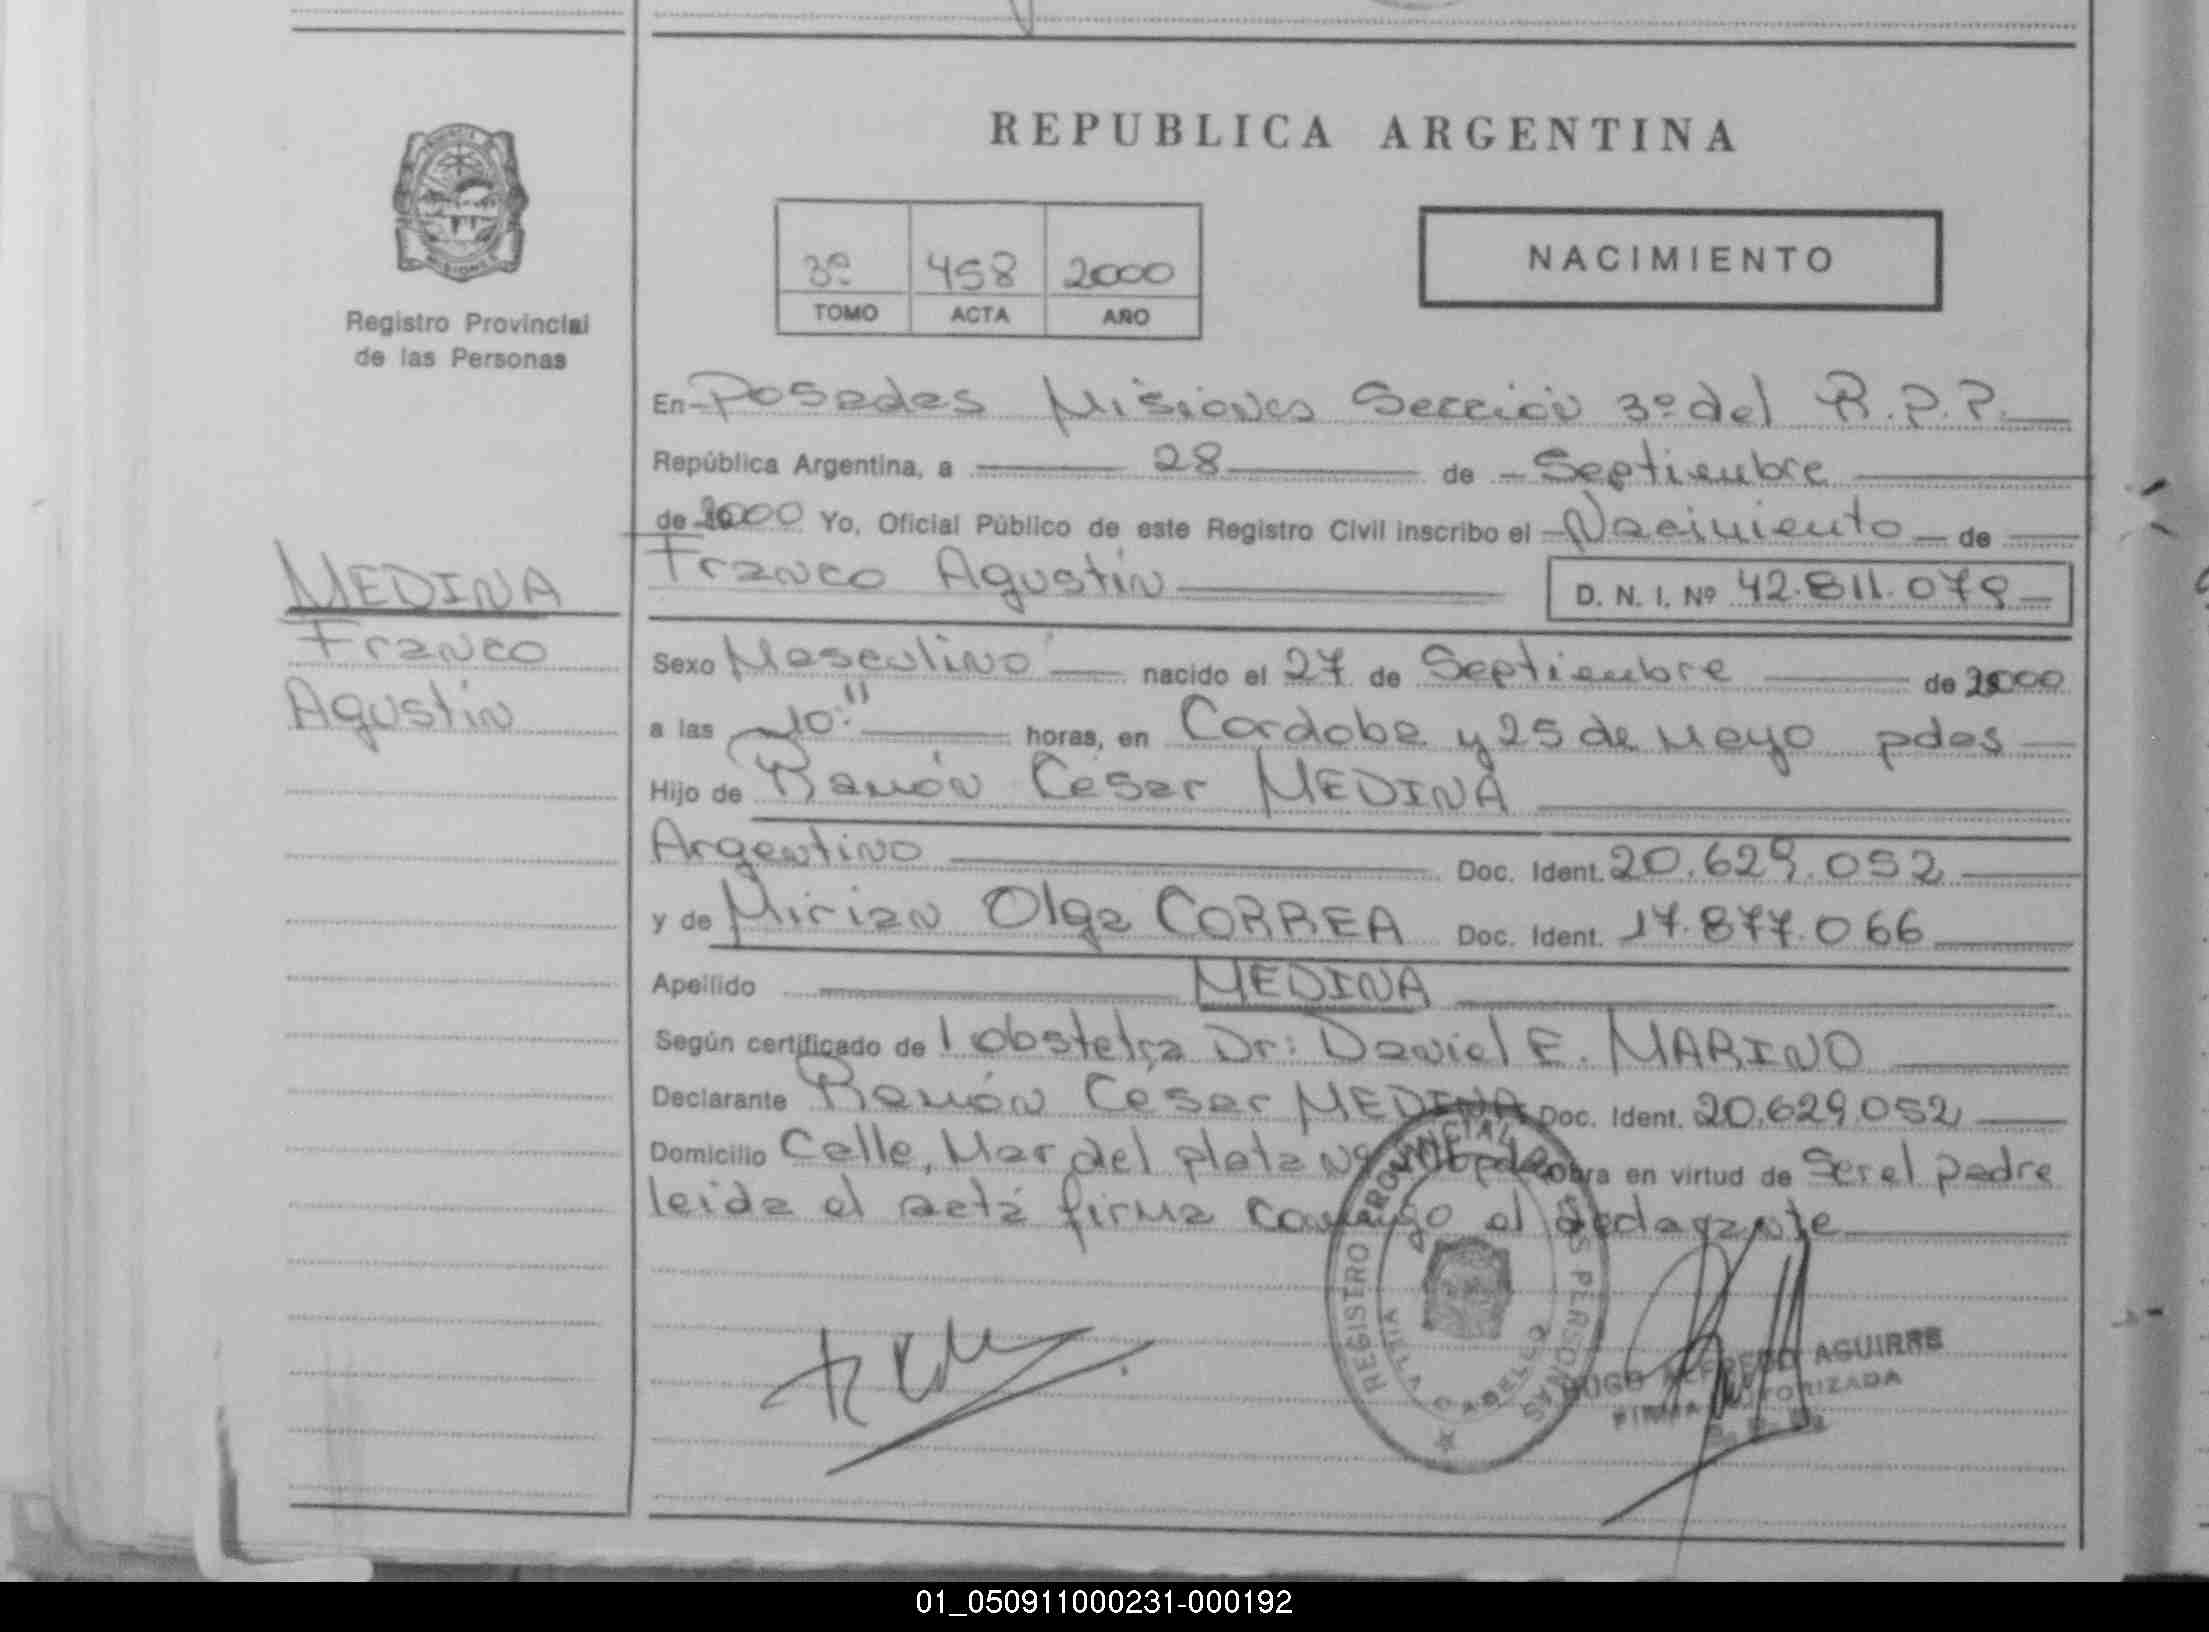 REPUBLICA ARGENTINA
3º 458 2000
TOMO ACTA AÑO
NACIMIENTO
Registro Provincial
de las Personas
En Posadas Misiones Sección 3º del R.P.P.
República Argentina, a 28 de Septiembre
de 2000 Yo, Oficial Público de este Registro Civil inscribo el Nacimiento de
Franco Agustín D. N. I. Nº 42.811.079
MEDINA
Franco
Agustín
Sexo Masculino nacido el 27 de Septiembre de 2000
a las 10:" horas, en Cordoba y 25 de Mayo pdas
Hijo de Ramón César MEDINA
Argentino Doc. Ident. 20.629.052
y de Mirian Olga CORREA Doc. Ident. 17.877.066
Apellido MEDINA
Según certificado de l obstetra Dr: Daniel E. MARINO
Declarante Ramón César MEDINA Doc. Ident. 20.629.052
Domicilio Calle, Mar del plata Nº obra en virtud de Ser el padre
leida el acta firma conmigo el declarante
REGISTRO PROVINCIAL DE LAS PERSONAS
VILLA CABELLO
HUGO ALFREDO AGUIRRE
FIRMA AUTORIZADA
01_050911000231-000192